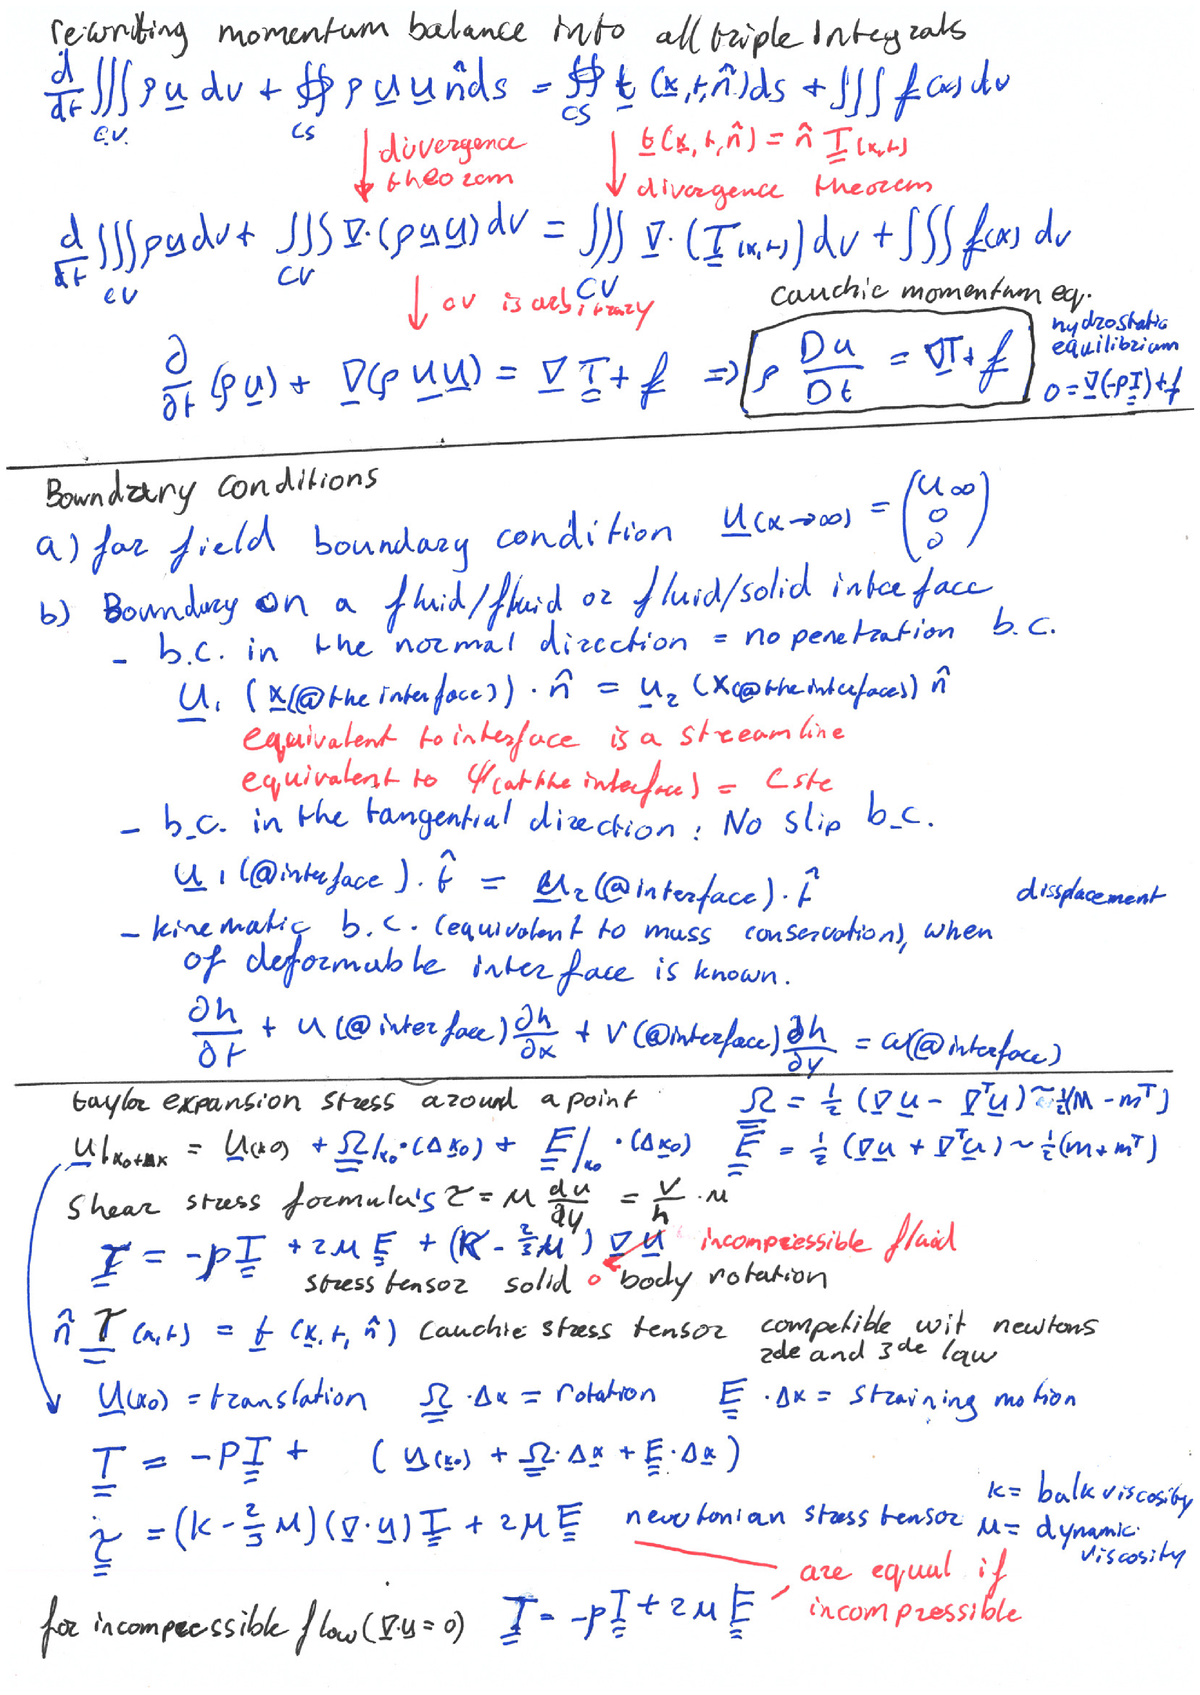 rewriting momentum balance into all triple integrals
d/dt ∭ ρ u dv + ∯ ρ u u n̂ ds = ∯ t (x,t,n̂) ds + ∭ f(x) dv
C.V. CS CS
divergence theorem
t(x,t,n̂) = n̂ T(x,t)
divergence theorem
d/dt ∭ ρ u dv + ∭ ∇·(ρ u u) dv = ∭ ∇·(T(x,t)) dv + ∭ f(x) dv
CV CV CV
cv is arbitrary
cauchie momentum eq.
∂/∂t (ρ u) + ∇(ρ u u) = ∇ T + f ⇒ ρ Du/Dt = ∇T + f
hydrostatic
equilibrium
0 = ∇(-pI) + f
Boundary conditions
a) far field boundary condition u(x→∞) = (u∞ 0 0)
b) Boundary on a fluid/fluid or fluid/solid interface
- b.c. in the normal direction = no penetration b.c.
u₁ (x(@the interface)) · n̂ = u₂ (x(@the interface)) n̂
equivalent to interface is a streamline
equivalent to ψ(at the interface) = Cste
- b.c. in the tangential direction : No slip b.c.
u₁ (@interface) · t̂ = u₂ (@interface) · t̂
dissplacement
- kinematic b.c. (equivalent to mass conservation), when
of deformable interface is known.
∂h/∂t + u (@interface) ∂h/∂x + v (@interface) ∂h/∂y = w(@interface)
taylor expansion stress around a point
Ω = ½ (∇u - ∇ᵀu) ~ ½(M - mᵀ)
u|x₀+Δx = u(x₀) + Ω|x₀·(Δx₀) + E|x₀ ·(Δx₀)
E = ½ (∇u + ∇ᵀu) ~ ½(m + mᵀ)
Shear stress formula's τ = μ du/dy = V/h · μ
T = -pI + 2μ E + (K - ⅔μ) ∇ u incompressible fluid
0
stress tensor solid body rotation
n̂ T (x,t) = t (x,t,n̂) cauchie stress tensor compatible wit newtons
2de and 3de law
u(x₀) = translation Ω · Δx = rotation E · Δx = straining motion
T = -PI + ( u(x₀) + Ω·Δx + E·Δx )
K = bulk viscosity
τ = (K - ⅔ μ)(∇·u) I + 2μ E newtonian stress tensor
μ = dynamic viscosity
are equal if
incompressible
for incompressible flow (∇·u = 0) T = -pI + 2μ E